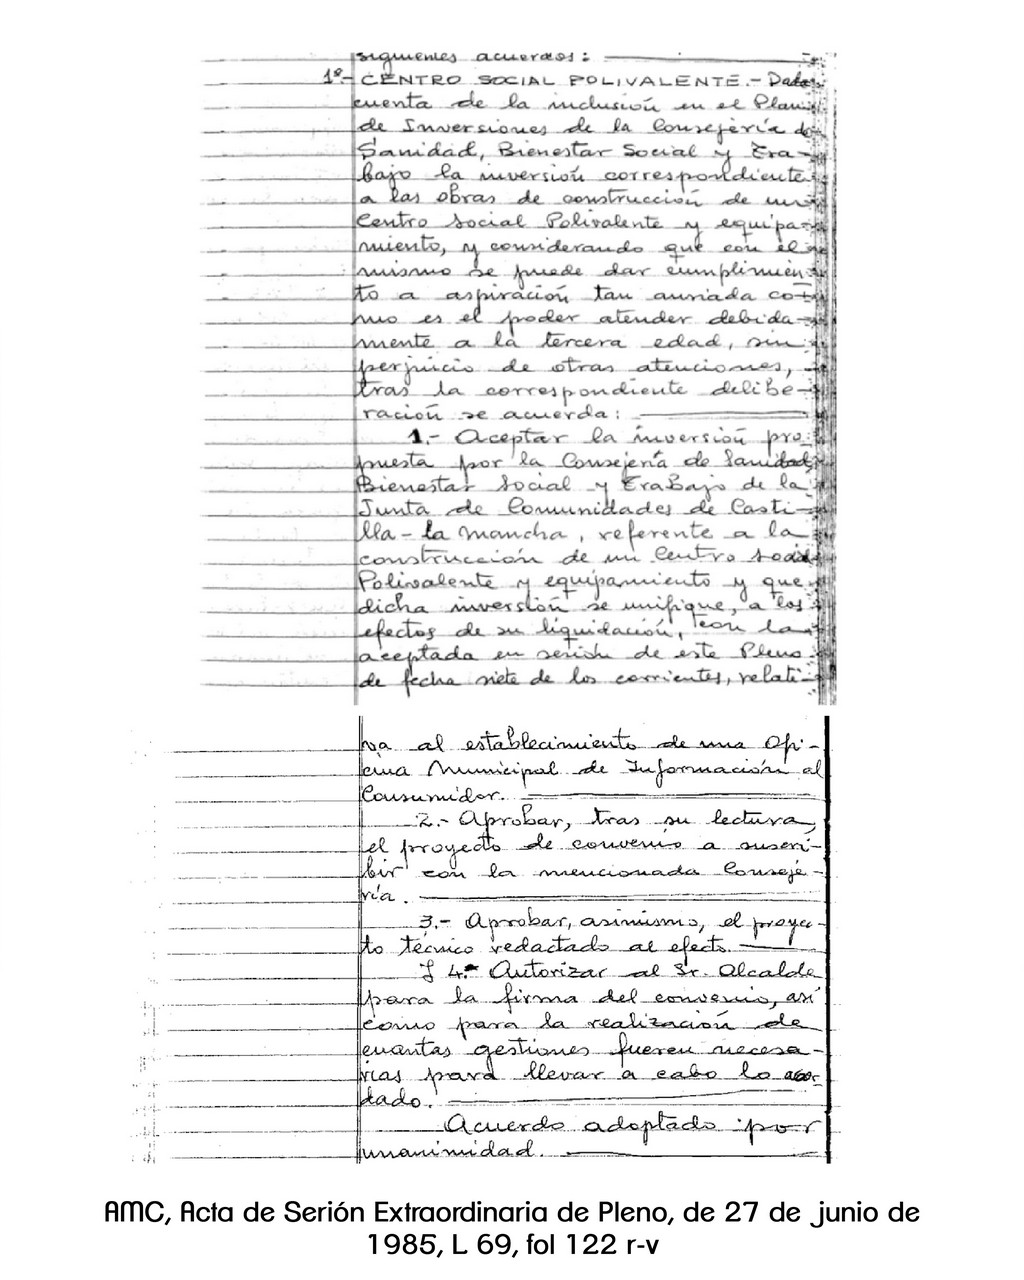 siguientes acuerdos:
1º.- CENTRO SOCIAL POLIVALENTE.- Dada
cuenta de la inclusión en el Plan
de Inversiones de la Consejería de
Sanidad, Bienestar Social y Tra-
bajo la inversión correspondiente
a las obras de construcción de un
Centro Social Polivalente y equipa-
miento, y considerando que con el
mismo se puede dar cumplimien-
to a aspiración tan ansiada co-
mo es el poder atender debida-
mente a la tercera edad, sin
perjuicio de otras atenciones,
tras la correspondiente delibe-
ración se acuerda:
1.- Aceptar la inversión pro-
puesta por la Consejería de Sanidad,
Bienestar Social y Trabajo de la
Junta de Comunidades de Casti-
lla-La Mancha, referente a la
construcción de un Centro Social
Polivalente y equipamiento y que
dicha inversión se unifique, a los
efectos de su liquidación, con la
aceptada en sesión de este Pleno
de fecha siete de los corrientes, relati-
va al establecimiento de una Ofi-
cina Municipal de Información al
Consumidor.
2.- Aprobar, tras su lectura,
el proyecto de convenio a suscri-
bir con la mencionada Conseje-
ría.
3.- Aprobar, asimismo, el proyec-
to técnico redactado al efecto.
Y 4.- Autorizar al Sr. Alcalde
para la firma del convenio, así
como para la realización de
cuantas gestiones fueren necesa-
rias para llevar a cabo lo acor-
dado.
Acuerdo adoptado por
unanimidad.
AMC, Acta de Serión Extraordinaria de Pleno, de 27 de junio de
1985, L 69, fol 122 r-v